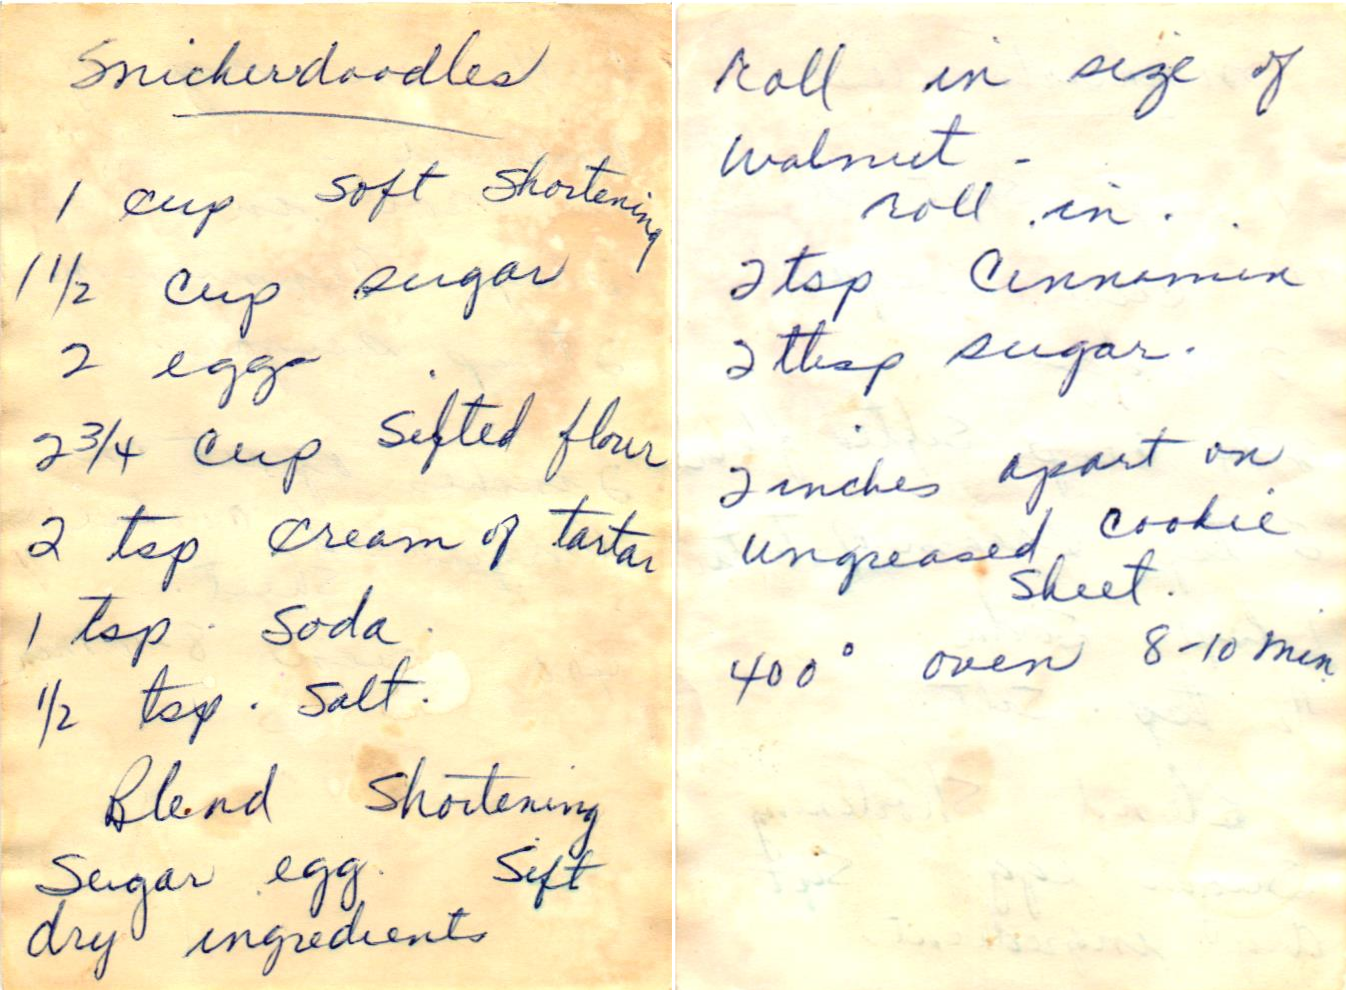 Snickerdoodles
1 cup soft Shortening
1 1/2 cup sugar
2 eggs
2 3/4 cup Sifted flour
2 tsp cream of tartar
1 tsp. Soda.
1/2 tsp. Salt.
Blend Shortening
Sugar egg. Sift
dry ingredients
Roll in size of
Walnut -
roll in.
2 tsp Cinnamin
2 tbsp sugar.
2 inches apart on
ungreased cookie
Sheet.
400° oven 8-10 min